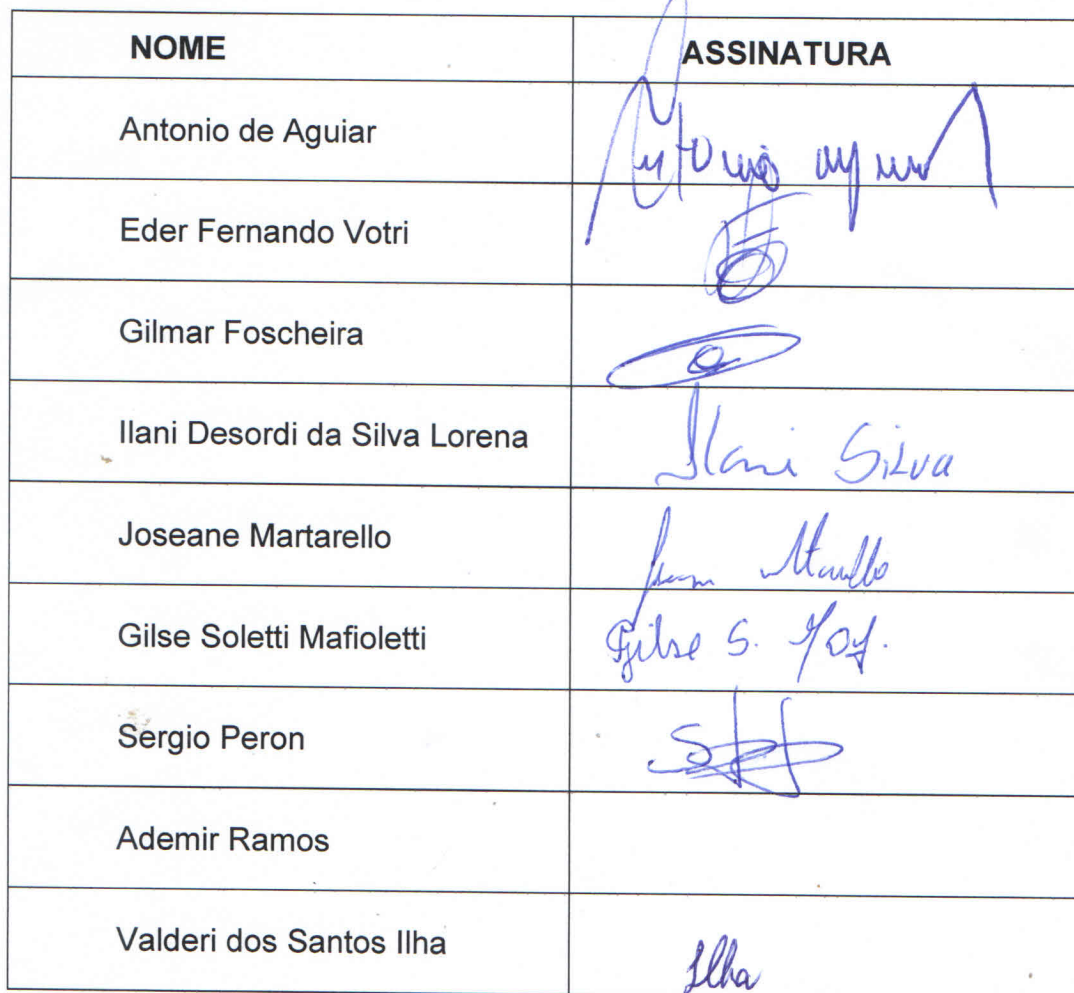 NOME ASSINATURA
Antonio de Aguiar Antonio
Eder Fernando Votri
Gilmar Foscheira
Ilani Desordi da Silva Lorena Ilani Silva
Joseane Martarello
Gilse Soletti Mafioletti Gilse S. Maf.
Sergio Peron
Ademir Ramos
Valderi dos Santos Ilha Ilha